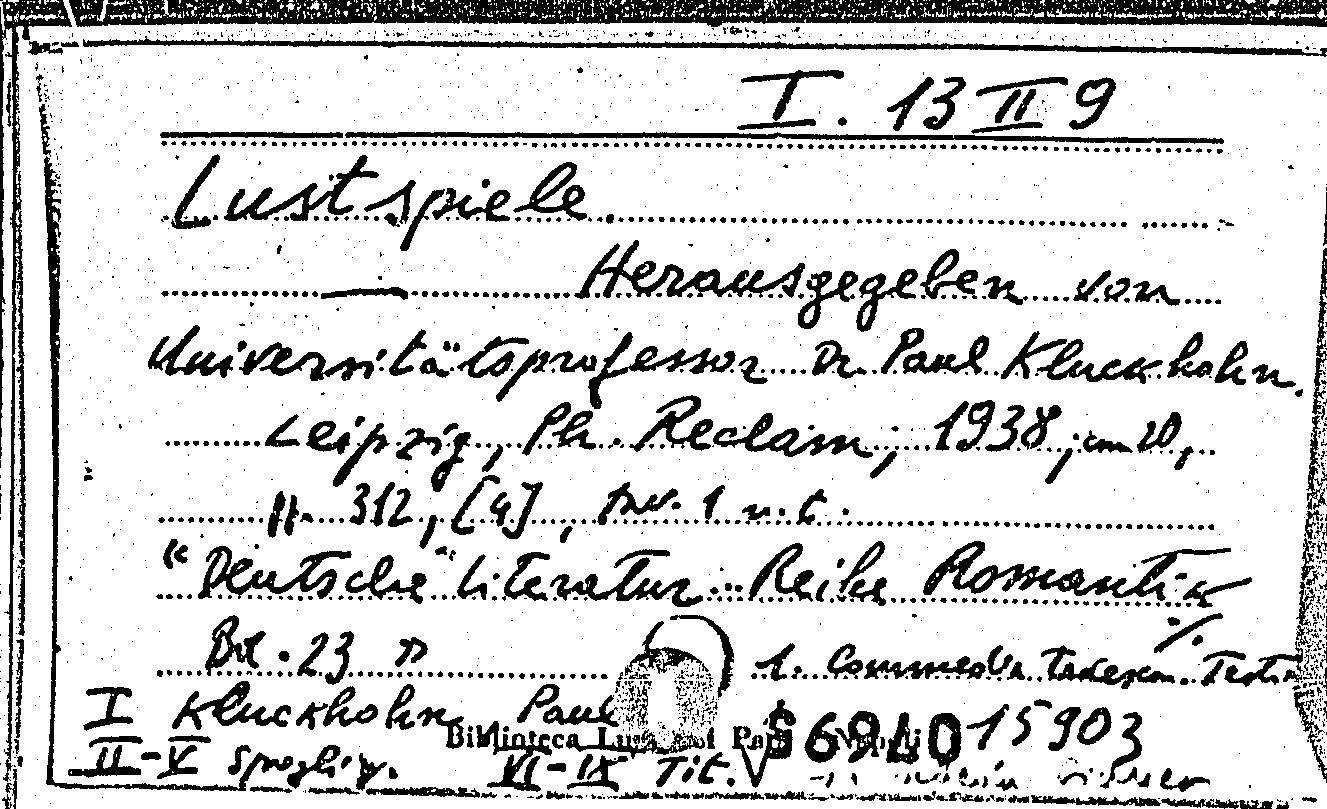 I. 13 II 9
Lustspiele.
— Herausgegeben von
Universitätsprofessor Dr. Paul Kluckhohn.
Leipzig, Ph. Reclam, 1938, cm 20,
pp. 312, [4], tav. 1 n.t.
"Deutsche Literatur.. Reihe Romantik
Bd. 23" 1. Commedia tedesca. Testi
I Kluckhohn, Paul
Biblioteca 56940 15903
II-V Spogli VI-IX Tit.